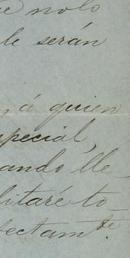 e no lo
le serán
, á quien
special,
ando lle-
litaré to-
ectamte